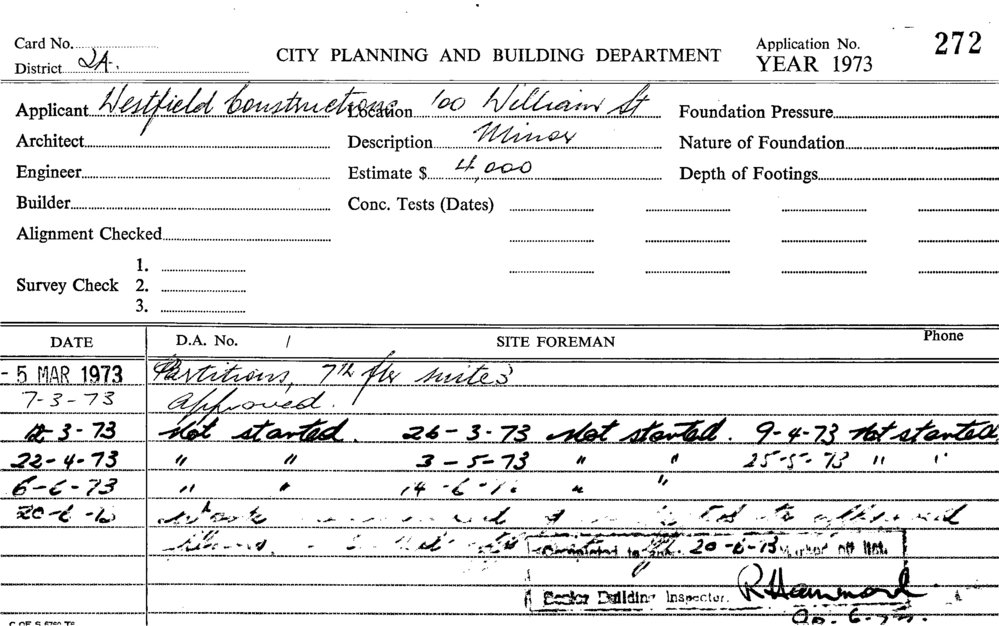 Card No.
District 2A.
CITY PLANNING AND BUILDING DEPARTMENT
Application No. 272
YEAR 1973
Applicant Westfield Constructions Location 100 William St Foundation Pressure
Architect Description Minor Nature of Foundation
Engineer Estimate $ 4,000 Depth of Footings
Builder Conc. Tests (Dates)
Alignment Checked
Survey Check 1.
2.
3.
DATE D.A. No. / SITE FOREMAN Phone
- 5 MAR 1973 Partitions, 7th flr suites
7-3-73 Approved.
12-3-73 Not started. 26-3-73 Not started. 9-4-73 Not started
22-4-73 " " 3-5-73 " " 25-5-73 " "
6-6-73 " " 14-6- " "
20-6- work
Completed 20-6-73 Marked off list.
Senior Building Inspector. R Hammond
C OF S